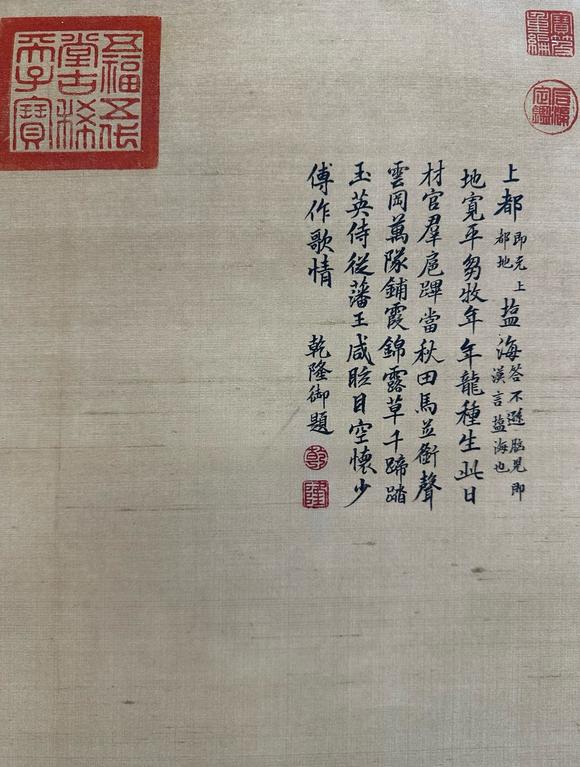 寶笈重編
石渠定鑑
上都即元上都地塩海答不遜腦兒即漢言塩海也
地寬平芻牧年年龍種生此日
材官羣扈蹕當秋田馬並銜聲
雲岡萬隊鋪霞錦露草千蹄踏
玉英侍從藩王咸眙目空懷少
傅作歌情
乾隆御題
乾
隆
五福五代
堂古稀
天子寶